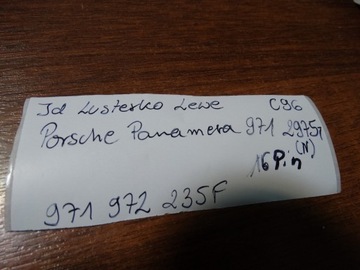 Id Lusterko Lewe C96
Porsche Panamera 971 2975
(N)
16 Pin
971 972 235F